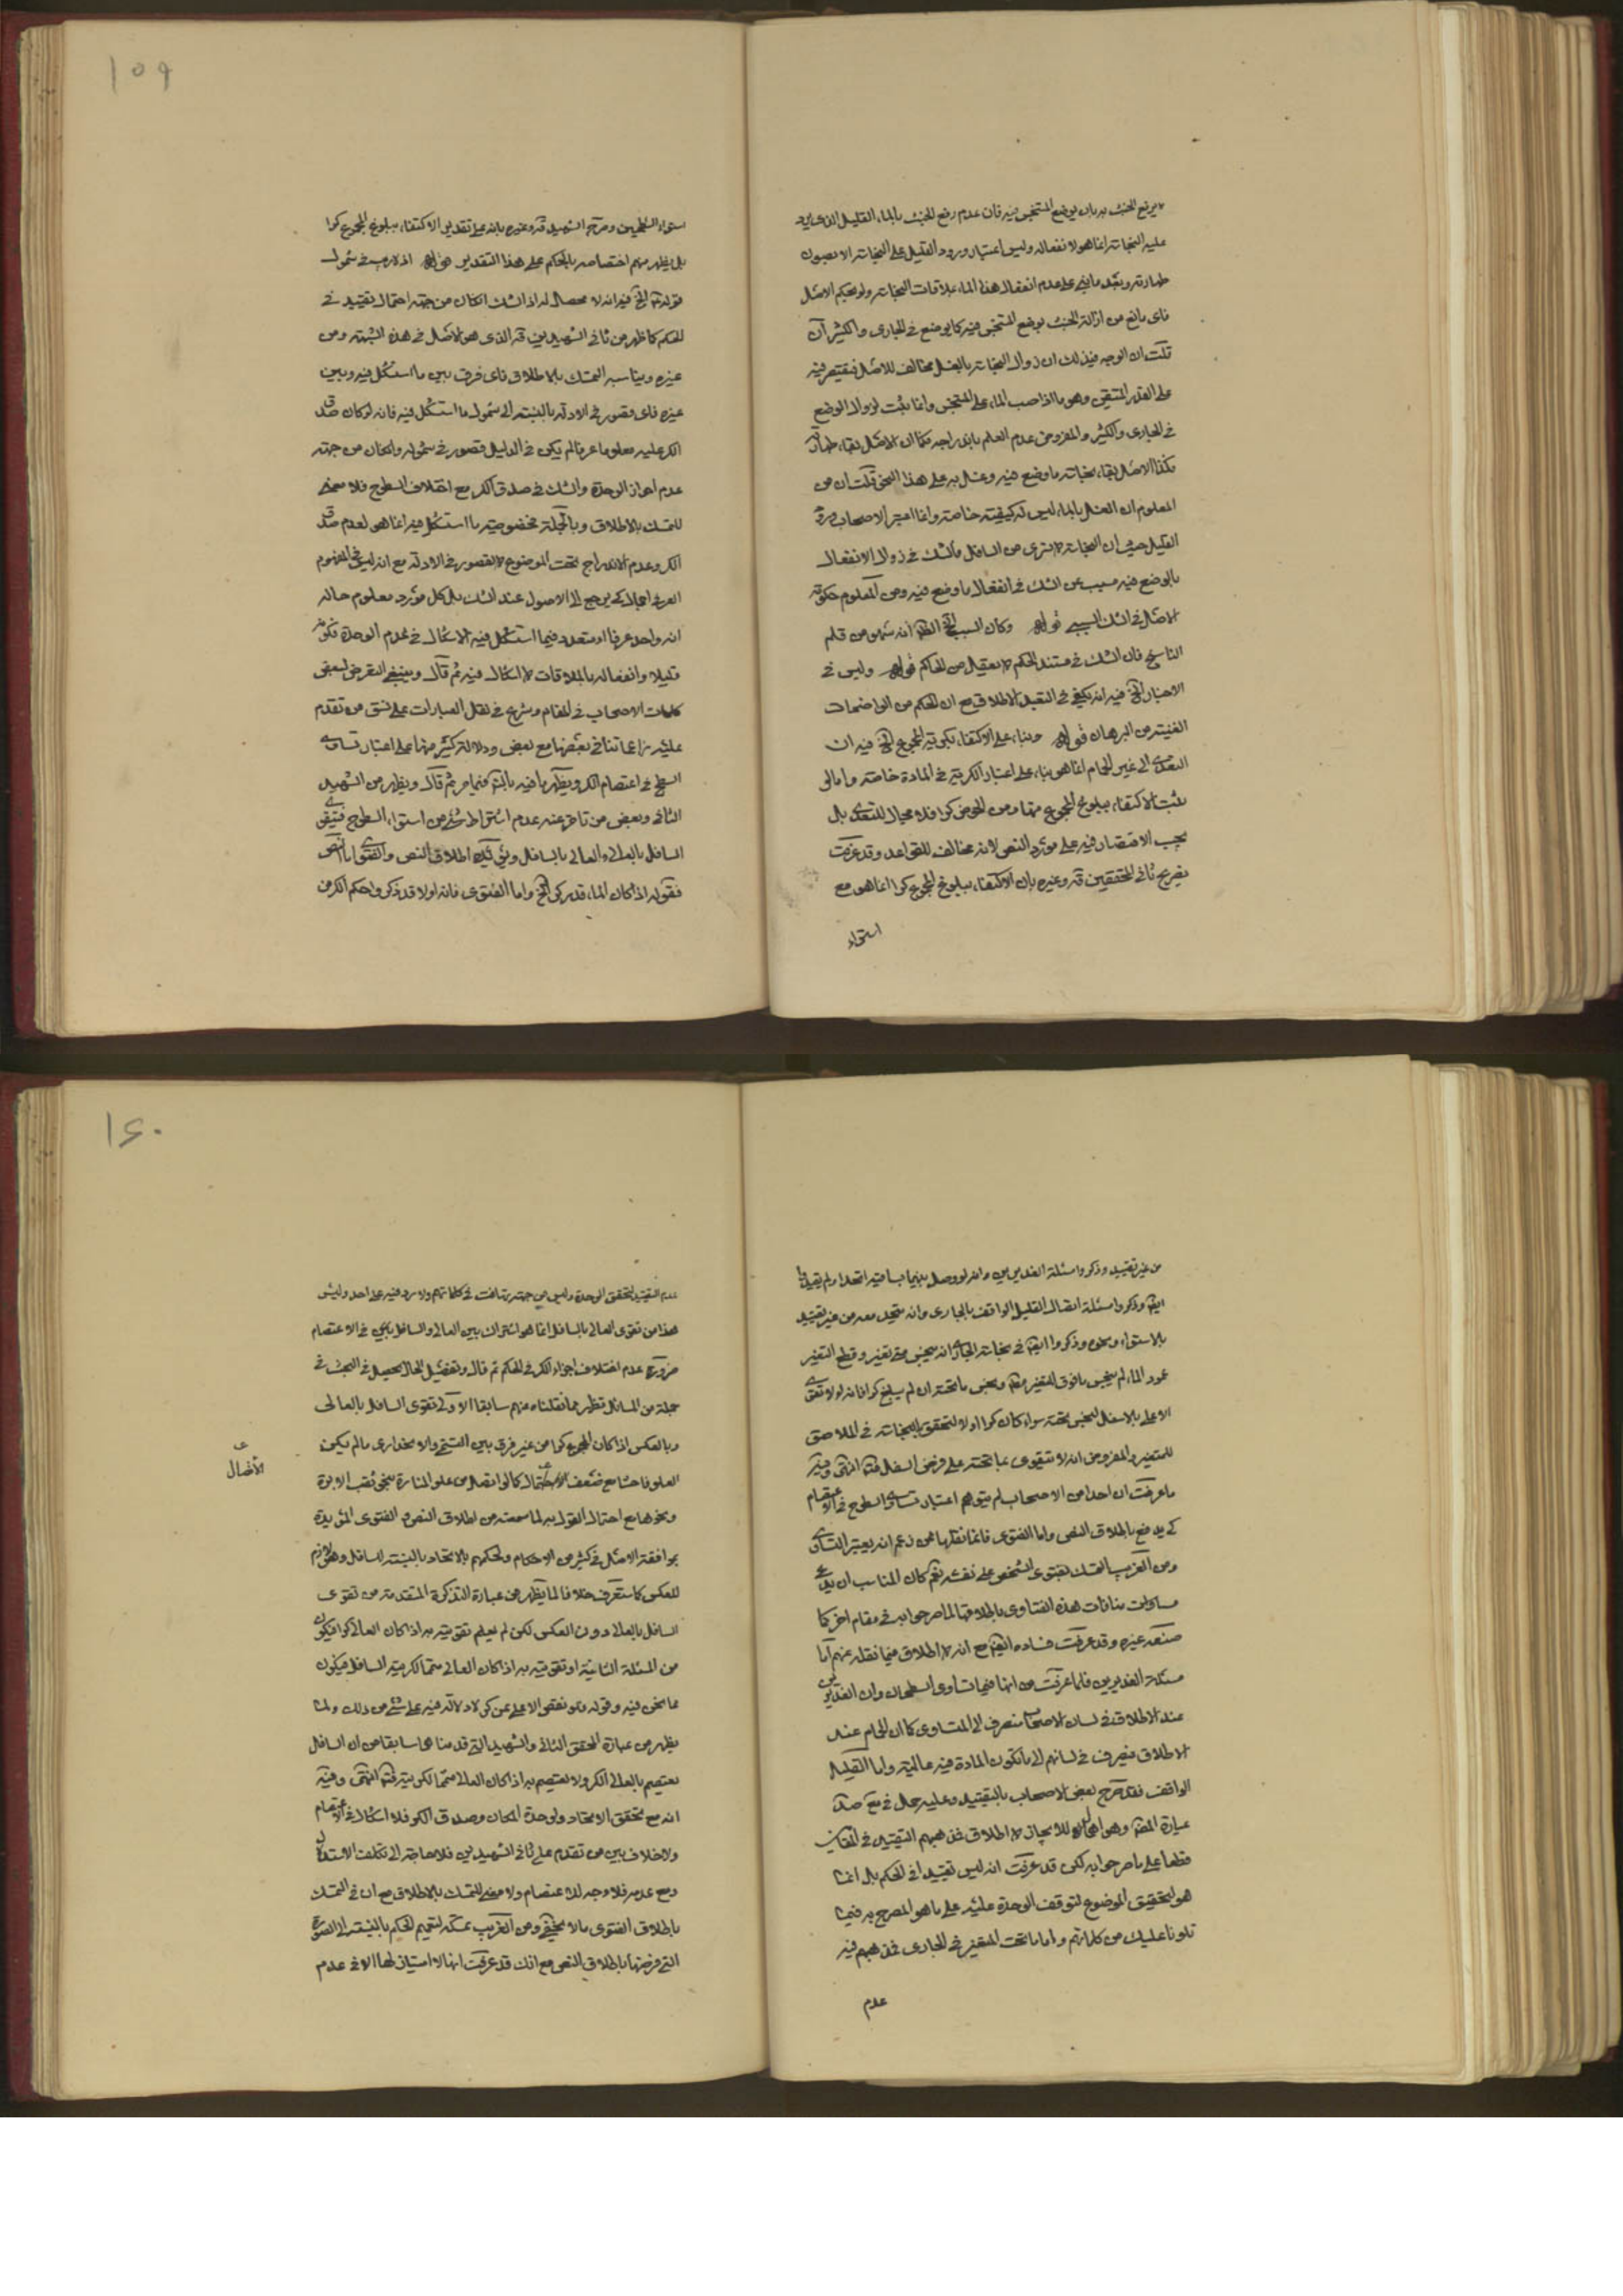 لا يرفع الخبث به بان يوضع المتنجس فيه فان عدم رفع الخبث بالماء القليل الذى يرد
عليه النجاسة انما هو لانفعاله وليس اعتبار ورود القليل على النجاسة الا لصون
طهارته وبعد ما بنى على عدم انفعال هذا الماء بملاقات النجاسة ولو بحكم الاصل
فاى مانع من ازالة الخبث بوضع المتنجس فيه كما يوضع فى الجارى والكثير فان
قلت ان الوجه فى ذلك ان زوال النجاسة بالغسل مخالف للاصل فيقتصر فيه
على القدر المتيقن وهو ما اذا صب الماء على المتنجس وانما يثبت لزوال الوضع
فى الجارى والكثير والمفروض عدم العلم باندراجه فكما ان الاصل بقاء طهارته
فكذا الاصل بقاء نجاسة ما وضع فيه وغسل به على هذا النحو قلت ان من
المعلوم ان الغسل بالماء ليس له كيفية خاصة وانما اعتبر الاصحاب ورود
القليل حيث ان النجاسة لا تسرى من السافل فالشك فى زوال الانفعال
بالوضع فيه مسبب عن الشك فى انفعال ما وضع فيه ومن المعلوم حكومة
الاصل فى الشك السببى قوله وكان السبب الخ الظاهر انه سهو من قلم
الناسخ فان الشك فى مستند الحكم لا يعقل من الحاكم قوله وليس فى
الاخبار الخ فيه انه يكفى فى التعبد الاطلاق مع ان الحكم من الواضحات
الغنية من البرهان قوله وبناء على الاكتفاء بكرية المجموع الخ فيه ان
التعدى الى غير الحمام انما هو بناء على اعتبار الكرية فى المادة خاصة واما لو
ثبت الاكتفاء ببلوغ المجموع منها ومن الحوض كرا فلا مجال للتعدى بل
يجب الاقتصار فيه على مورد النص لانه مخالف للقواعد وقد عرفت
تصريح ثانى المحققين قده وغيره بان الاكتفاء ببلوغ المجموع كرا انما هو مع
استواء
١٥٩
استواء السطحين وصرح الشهيد قده وغيره بانه على تقدير الاكتفاء ببلوغ المجموع كرا
بل يظهر منهم اختصاصه بالحكم على هذا التقدير قوله اذ لا ريب فى شمول
قوله الخ فيه انه لا محصل له اذ الشك ان كان من جهة احتمال تقييد فى
الحكم كما ظهر من ثانى الشهيدين قده الذى هو الاصل فى هذه الشبهة ومن
غيره ويناسبه التمسك بالاطلاق فاى فرق بين ما استشكل فيه وبين
غيره فاى قصور فى الادلة بالنسبة الى شمول ما استشكل فيه فانه لو كان صدق
الكر عليه معلوما عرفا لم يكن فى الدليل قصور فى شموله وان كان من جهة
عدم احراز الوحدة والشك فى صدق الكر مع اختلاف السطوح فلا معنى
للتمسك بالاطلاق وبالجملة فخصوصية ما استشكل فيه انما هى لعدم صدق
الكر وعدم الاندراج تحت الموضوع لا لقصور فى الادلة مع انه ليس فى المفهوم
العرفى اجمال كى يرجع الى الاصول عند الشك بل كل مورد معلوم حاله
انه واحد عرفا او متعدد فيما استشكل فيه لا اشكال فى عدم الوحدة فكونه
قليلا وانفعاله بالملاقات لا اشكال فيه ثم قال وينبغى التعرض لبعض
كلمات الاصحاب فى المقام وشرع فى نقل العبارات على نسق من تقدم
عليه زاعما تنافى بعضها مع بعض ودلالة كثير منها على اعتبار تساوى
السطح فى اعتصام الكر ويظهر ما فيه بالتأمل فيما مر ثم قال ويظهر من الشهيد
الثانى وبعض من تاخر عنه عدم اشتراط شئ من استواء السطوح فيتقوى
السافل بالعالى والعالى بالسافل ويؤيد ذلك اطلاق النص والفتوى اما النص
فقوله اذا كان الماء قدر كر الخ واما الفتوى فانه اولا قد ذكروا حكم الكر من
من غير تقييد وذكروا مسئلة الغديرين وانه لو وصل بينهما بساقية اتحدا ولم يقيدوها
ايضا وذكروا مسئلة اتصال القليل الواقف بالجارى وانه يتحد معه من غير تقييد
بالاستواء ونحوه وذكروا ايضا فى نجاسة الجارى انه ينجس متى تغير وقطع التغير
عمود الماء لم ينجس ما فوق المتغير منه وينجس ما تحته ان لم يبلغ كرا فانه لو لا تقوى
الاعلى بالاسفل لنجس تحته سواء كان كرا او لا لتحقق النجاسة فى الملاصق
للمتغير والمفروض انه لا يتقوى بما تحته على فرض السفل فتامل انتهى وفيه
ما عرفت ان احدا من الاصحاب لم يتوهم اعتبار تساوى السطوح فى الاعتصام
كى يدفع باطلاق النص واما الفتوى فانما نقلها عمن زعم انه يعتبر التساوى
ومن الغريب التمسك بفتوى الشخص على نفسه نعم كان المناسب ان يدعى
مساواة منافات هذه الفتاوى باطلاقها لما صرحوا به فى مقام اخر كما
صنعه غيره وقد عرفت فساده ايضا مع انه لا اطلاق فيما نقله عنهم اما
مسئلة الغديرين فلما عرفت من انها فيما تساوى السطحان وان الغديرين
عند الاطلاق فى لسان الاصحاب منصرف الى المتساوى كما ان الحمام عند
الاطلاق ينصرف فى لسانهم الى ما تكون المادة فيه عالية واما القليل
الواقف فقد صرح بعض الاصحاب بالتقييد وعليه حمل فى مع صد
عبارة المصنف وهو اهمال للايجاز لا اطلاق فمذهبهم التقييد فى المقامين
قطعا على ما صرحوا به لكن قد عرفت انه ليس تقييدا فى الحكم بل انما
هو لتحقيق الموضوع لتوقف الوحدة عليه على ما هو المصرح به فيما
تلونا عليك من كلماتهم واما ما تحت المتغير فى الجارى فمذهبهم فيه
عدم
١٦٠
عدم التقييد لتحقق الوحدة وليس من جهة تهافت فى كلماتهم ولا يرد فيه على احد وليس
هذا من تقوى العالى بالسافل انما هو اشتراك بين العالى والسافل فى الاعتصام
ضرورة عدم اختلاف اجزاء الكر فى الحكم ثم قال وتفصيل الحال يحصل فى البحث فى
جملة من المسائل تظهر مما نقلناه عنهم سابقا الاولى تقوى السافل بالعالى
وبالعكس اذا كان المجموع كرا من غير فرق بين التسنيم والانحدارى ما لم يكن
العلو فاحشا مع ضعف الاحتمال كما لو اتصل من علو المنارة بنحو ثقب الابرة
ونحوها مع احتمال القول به لما سمعته من اطلاق النص والفتوى المؤيدة
بموافقة الاصل فى كثير من الاحكام ولحكمهم بالاتحاد بالنسبة للسافل وهو لازم
للعكس كما ستعرف خلافا لما يظهر من عبارة التذكرة المتقدمة من تقوى
السافل بالعالى دون العكس لكن لم يعلم تقويته به اذا كان العالى كرا فيكون
من المسئلة الثانية او تقويته به اذا كان العالى متمما لكرية السافل فيكون
مما نحن فيه وقوله ولو نقص الاعلى عن كر لا دلالة فيه على شئ من ذلك ولما
يظهر من عبارة المحقق الثانى والشهيد التى قدمناها سابقا من ان السافل
يعتصم بالعالى الكر ولا يعتصم به اذا كان العالى متمما لكريته فتامل انتهى وفيه
انه مع تحقق الاتحاد ولوحدة المكان وصدق الكر فلا اشكال فى الاعتصام
ولا خلاف بين من تقدم على ثانى الشهيدين فلا حاجة الى تكلف الاستدلال
ومع عدمه فلا وجه للاعتصام ولا معنى للتمسك بالاطلاق مع ان فى التمسك
باطلاق الفتوى ما لا يخفى ومن الغريب تمسكه لتعميم الحكم بالنسبة الى الصورة
التى فرضها باطلاق النص مع انك قد عرفت انها لا امتياز لها الا فى عدم
الاتصال